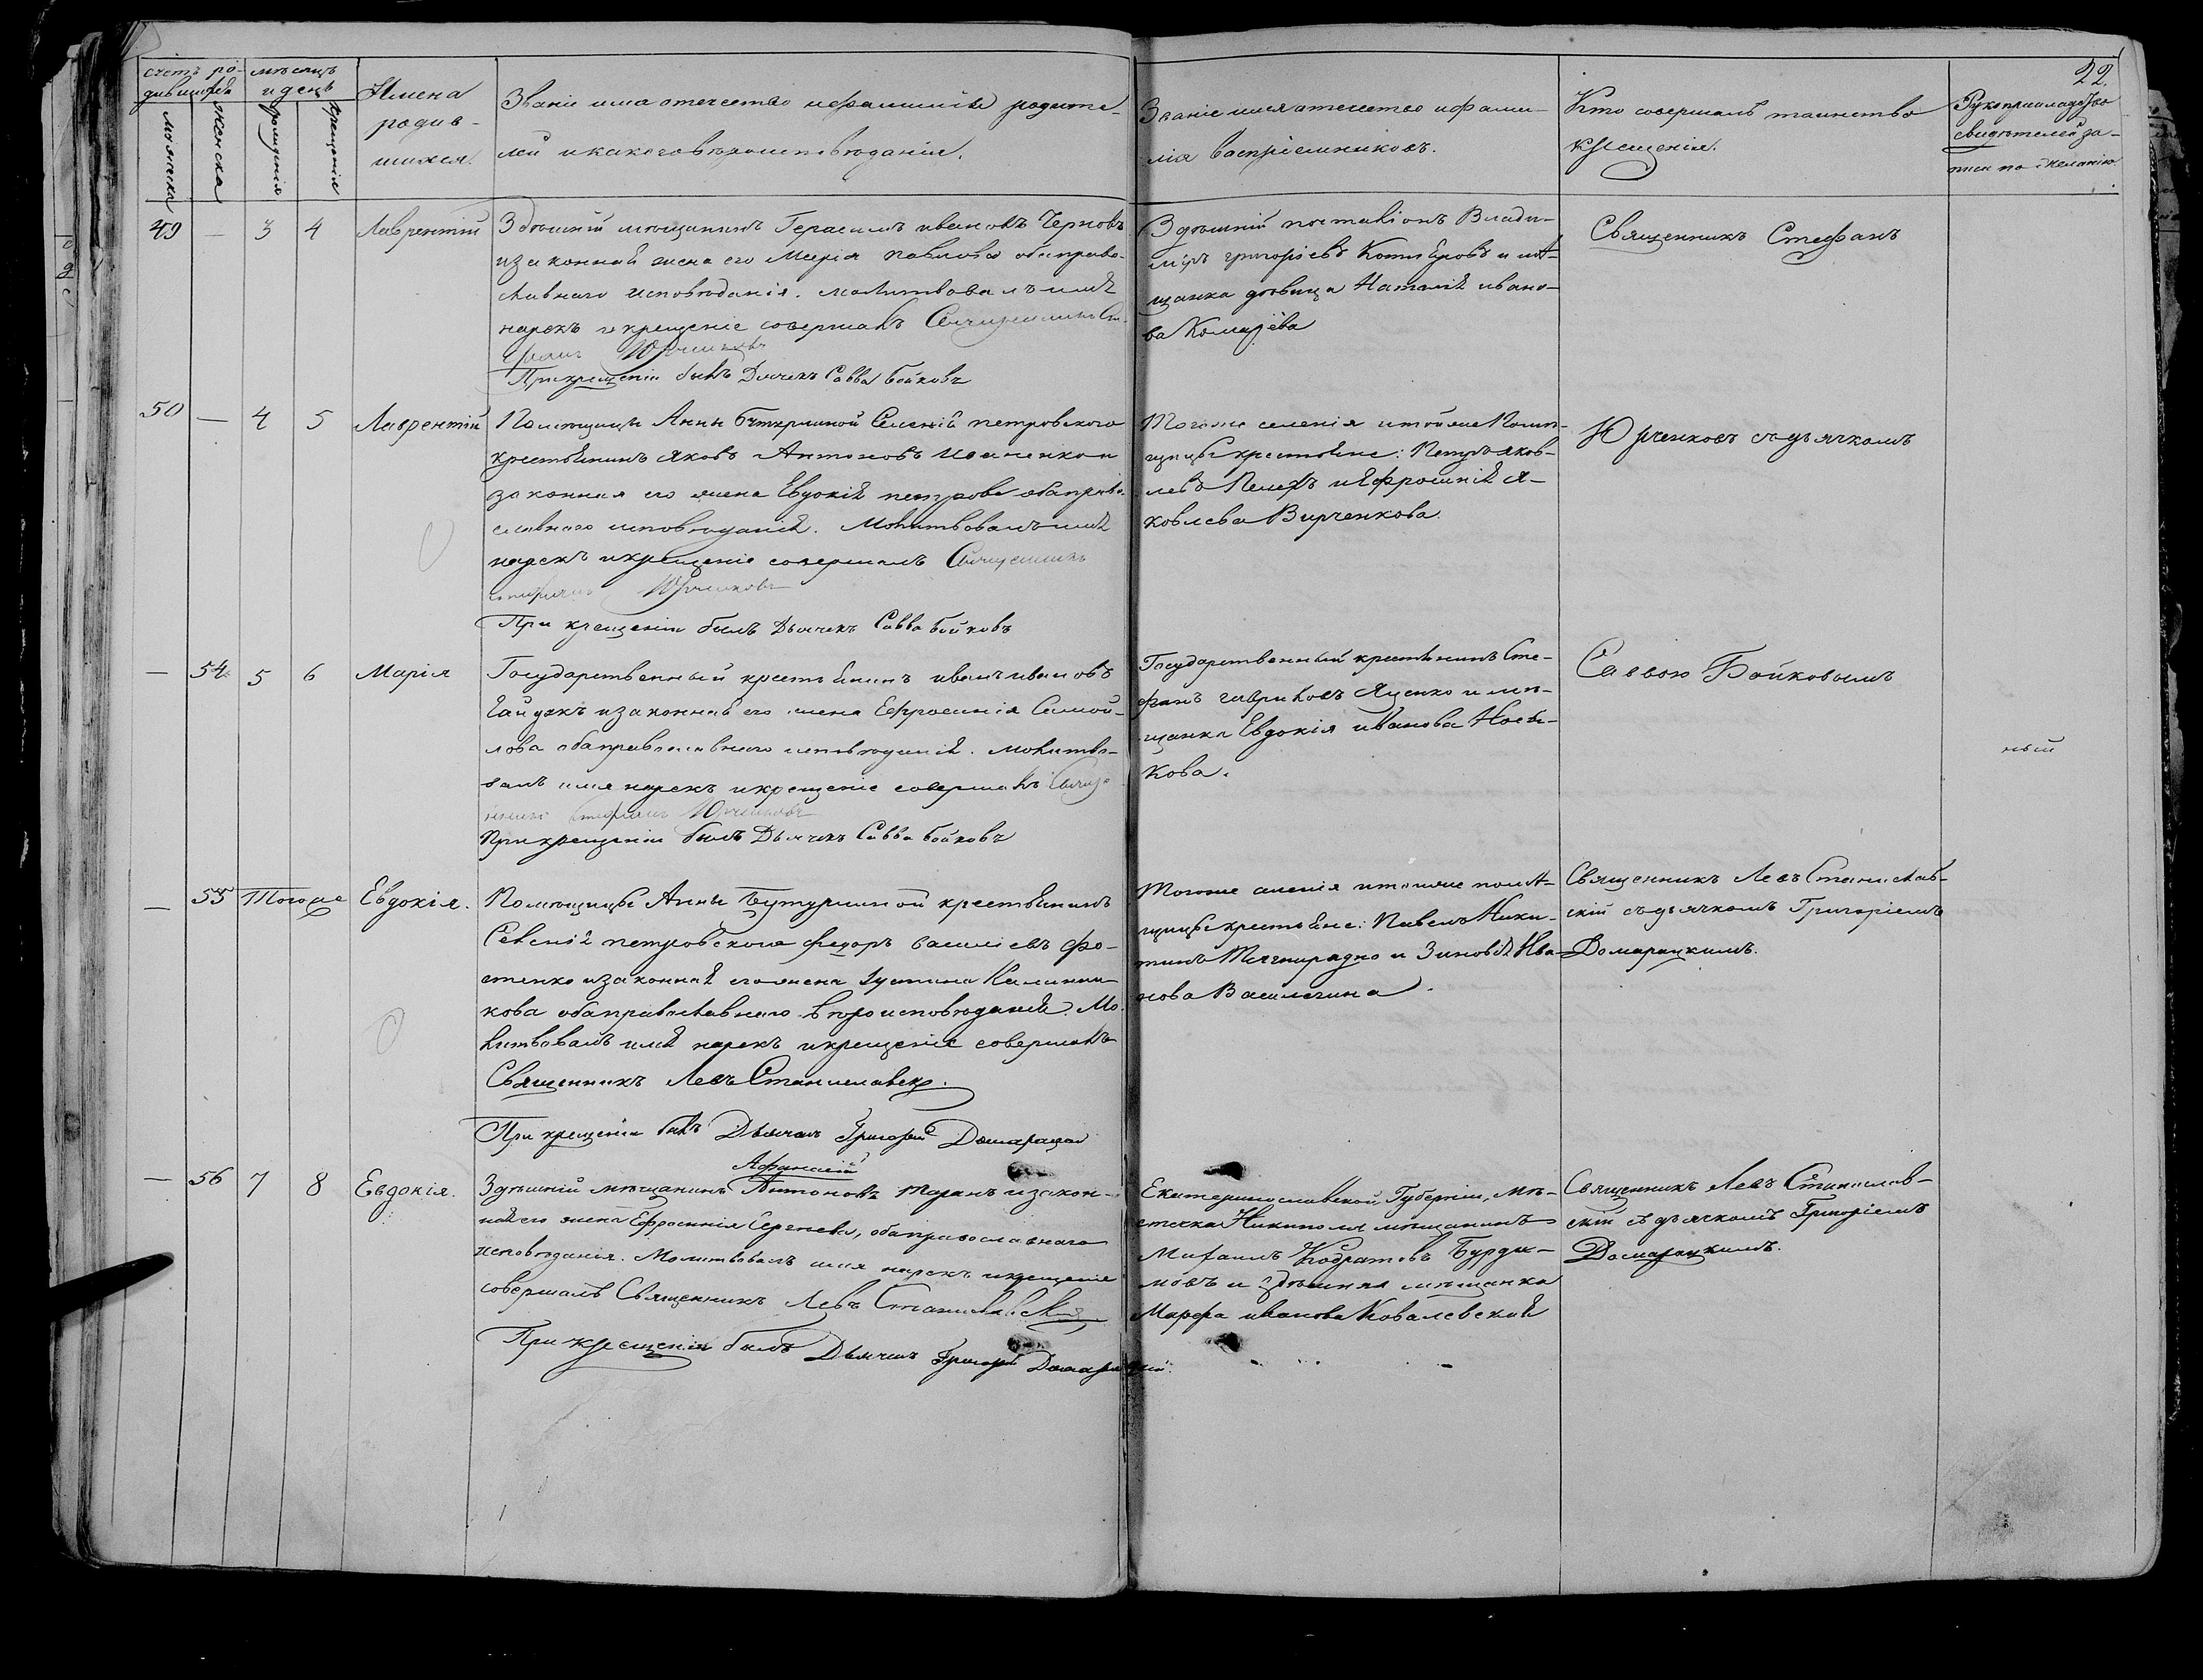 22.
счетъ ро-
дившихся
мѣсяцъ
и день
мужеска
женска
рожденія
крещенія
Имена
родив-
шихся.
Званіе имя отечество и фамилия родите-
лей и какого вѣроисповѣданія.
Званіе имя отечество и фами-
лія воспріемниковъ.
Кто совершалъ таинство
крещенія.
Рукоприкладство
свидѣтелей за-
писи по желанію
49 — 3 4 Лаврентій
Здѣшній мѣщанинъ Герасимъ ивановъ Черновъ
и законная жена его Марія павлова оба право-
славнаго исповѣданія. молитвовалъ имя
нарекъ и крещеніе совершалъ Священникъ Сте-
фанъ Юрченковъ
При крещеніи былъ Дьячекъ Савва Бойковъ
Здѣшній Влади-
міръ григоріевъ и мѣ-
щанка дѣвица Наталія ивано-
ва
Священникъ Стефанъ
50 — 4 5 Лаврентій
Помѣщицы Анны Бутурлиной Селенія петровского
крестьянинъ яковъ Антоновъ и
законная его жена Евдокія петрова оба право-
славнаго исповѣданія. Молитвовалъ имя
нарекъ и крещеніе совершалъ Священникъ
Стефанъ Юрченковъ
При крещеніи былъ Дьячекъ Савва Бойковъ
Тогоже селенія и тойже Помѣ-
щицы крестьяне: Петръ яков-
левъ и Ефросинія Я-
ковлева Вирченкова.
Юрченковъ съ дьячкомъ
— 54 5 6 Марія
Государственный крестьянинъ иванъ ивановъ
Гайдукъ и законная его жена Ефросинія Самой-
лова оба православнаго исповѣданія. молитво-
валъ имя нарекъ и крещеніе совершалъ Свяще
нникъ Стефанъ Юрченковъ
При крещеніи былъ Дьячекъ Савва Бойковъ
Государственный крестьянинъ Сте-
фанъ гавриловъ Яценко и мѣ-
щанка Евдокія иванова Нови-
кова.
Саввою Бойковымъ
ный
— 55 Тогоже Евдокія.
Помѣщицы Анны Бутурлиной крестьянинъ
Селенія петровского федоръ василіевъ фо-
стенко и законная его жена Іустина Калинни-
кова оба православнаго вѣроисповѣданія. Мо-
литвовалъ имя нарекъ и крещеніе совершалъ
Священникъ Левъ Станиславскій.
При крещеніи былъ Дьячекъ Григорій Домарацкій
Тогоже селенія и тойже помѣ-
щицы крестьяне: Павелъ Ники-
тинъ и Зиновія Ива-
нова Василечина.
Священникъ Левъ Станислав-
скій съ дьячкомъ Григоріемъ
Домарацкимъ.
— 56 7 8 Евдокія.
Афанасій
Здѣшній мѣщанинъ Антоновъ Таранъ и закон-
ная его жена Ефросинія Сергѣева, оба православнаго
исповѣданія. Молитвовалъ имя нарекъ и крещеніе
совершалъ Священникъ Левъ Станиславскій
При крещеніи былъ Дьячекъ Григорій Домарацкій.
Екатеринославской Губерніи, мѣ-
стечка Никополя мѣщанинъ
Михаилъ Кодратовъ Бурди-
мовъ и здѣшняя мѣщанка
Марфа иванова Ковалевская
Священникъ Левъ Станислав-
скій съ дьячкомъ Григоріемъ
Домарацкимъ.